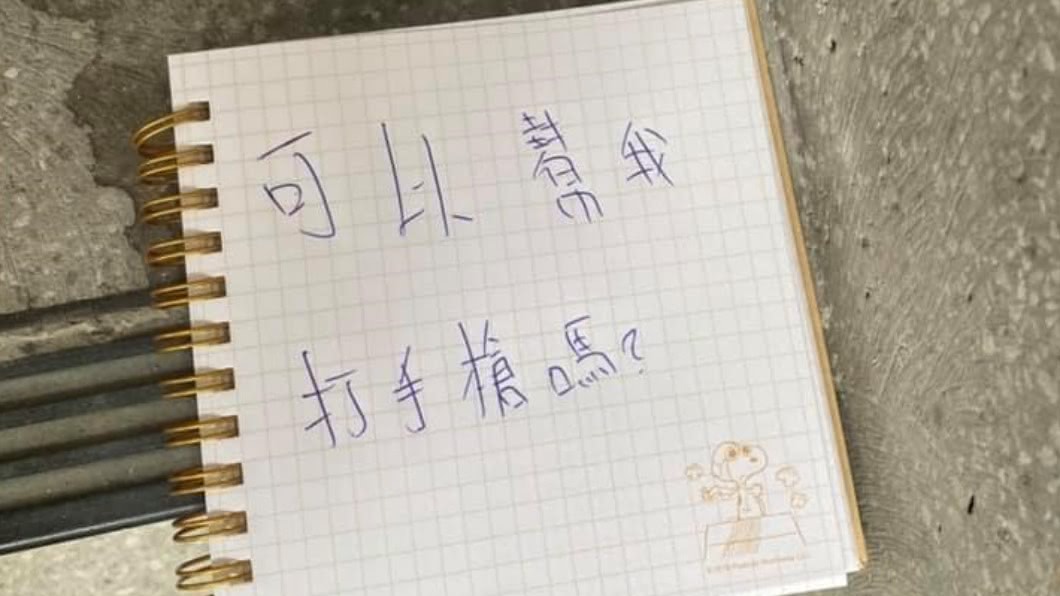 可以幫我
打手槍嗎?